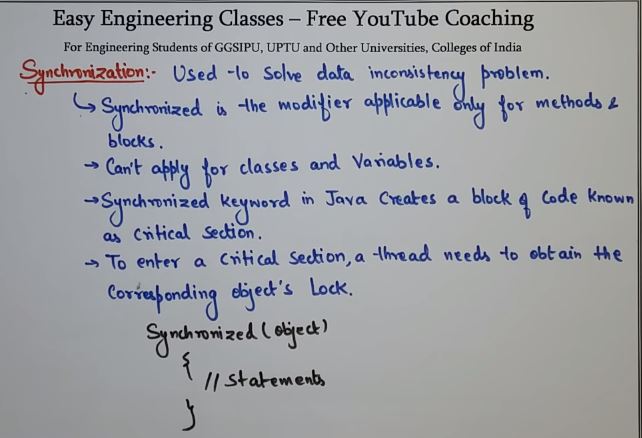 Easy Engineering Classes – Free YouTube Coaching
For Engineering Students of GGSIPU, UPTU and Other Universities, Colleges of India
Synchronization:- Used to solve data inconsistency problem.
↳ Synchronized is the modifier applicable only for methods &
blocks.
→ Can't apply for classes and Variables.
→ Synchronized keyword in Java Creates a block of Code known
as Critical Section.
→ To enter a Critical Section, a thread needs to obtain the
Corresponding object's Lock.
Synchronized (object)
{
// Statements
}